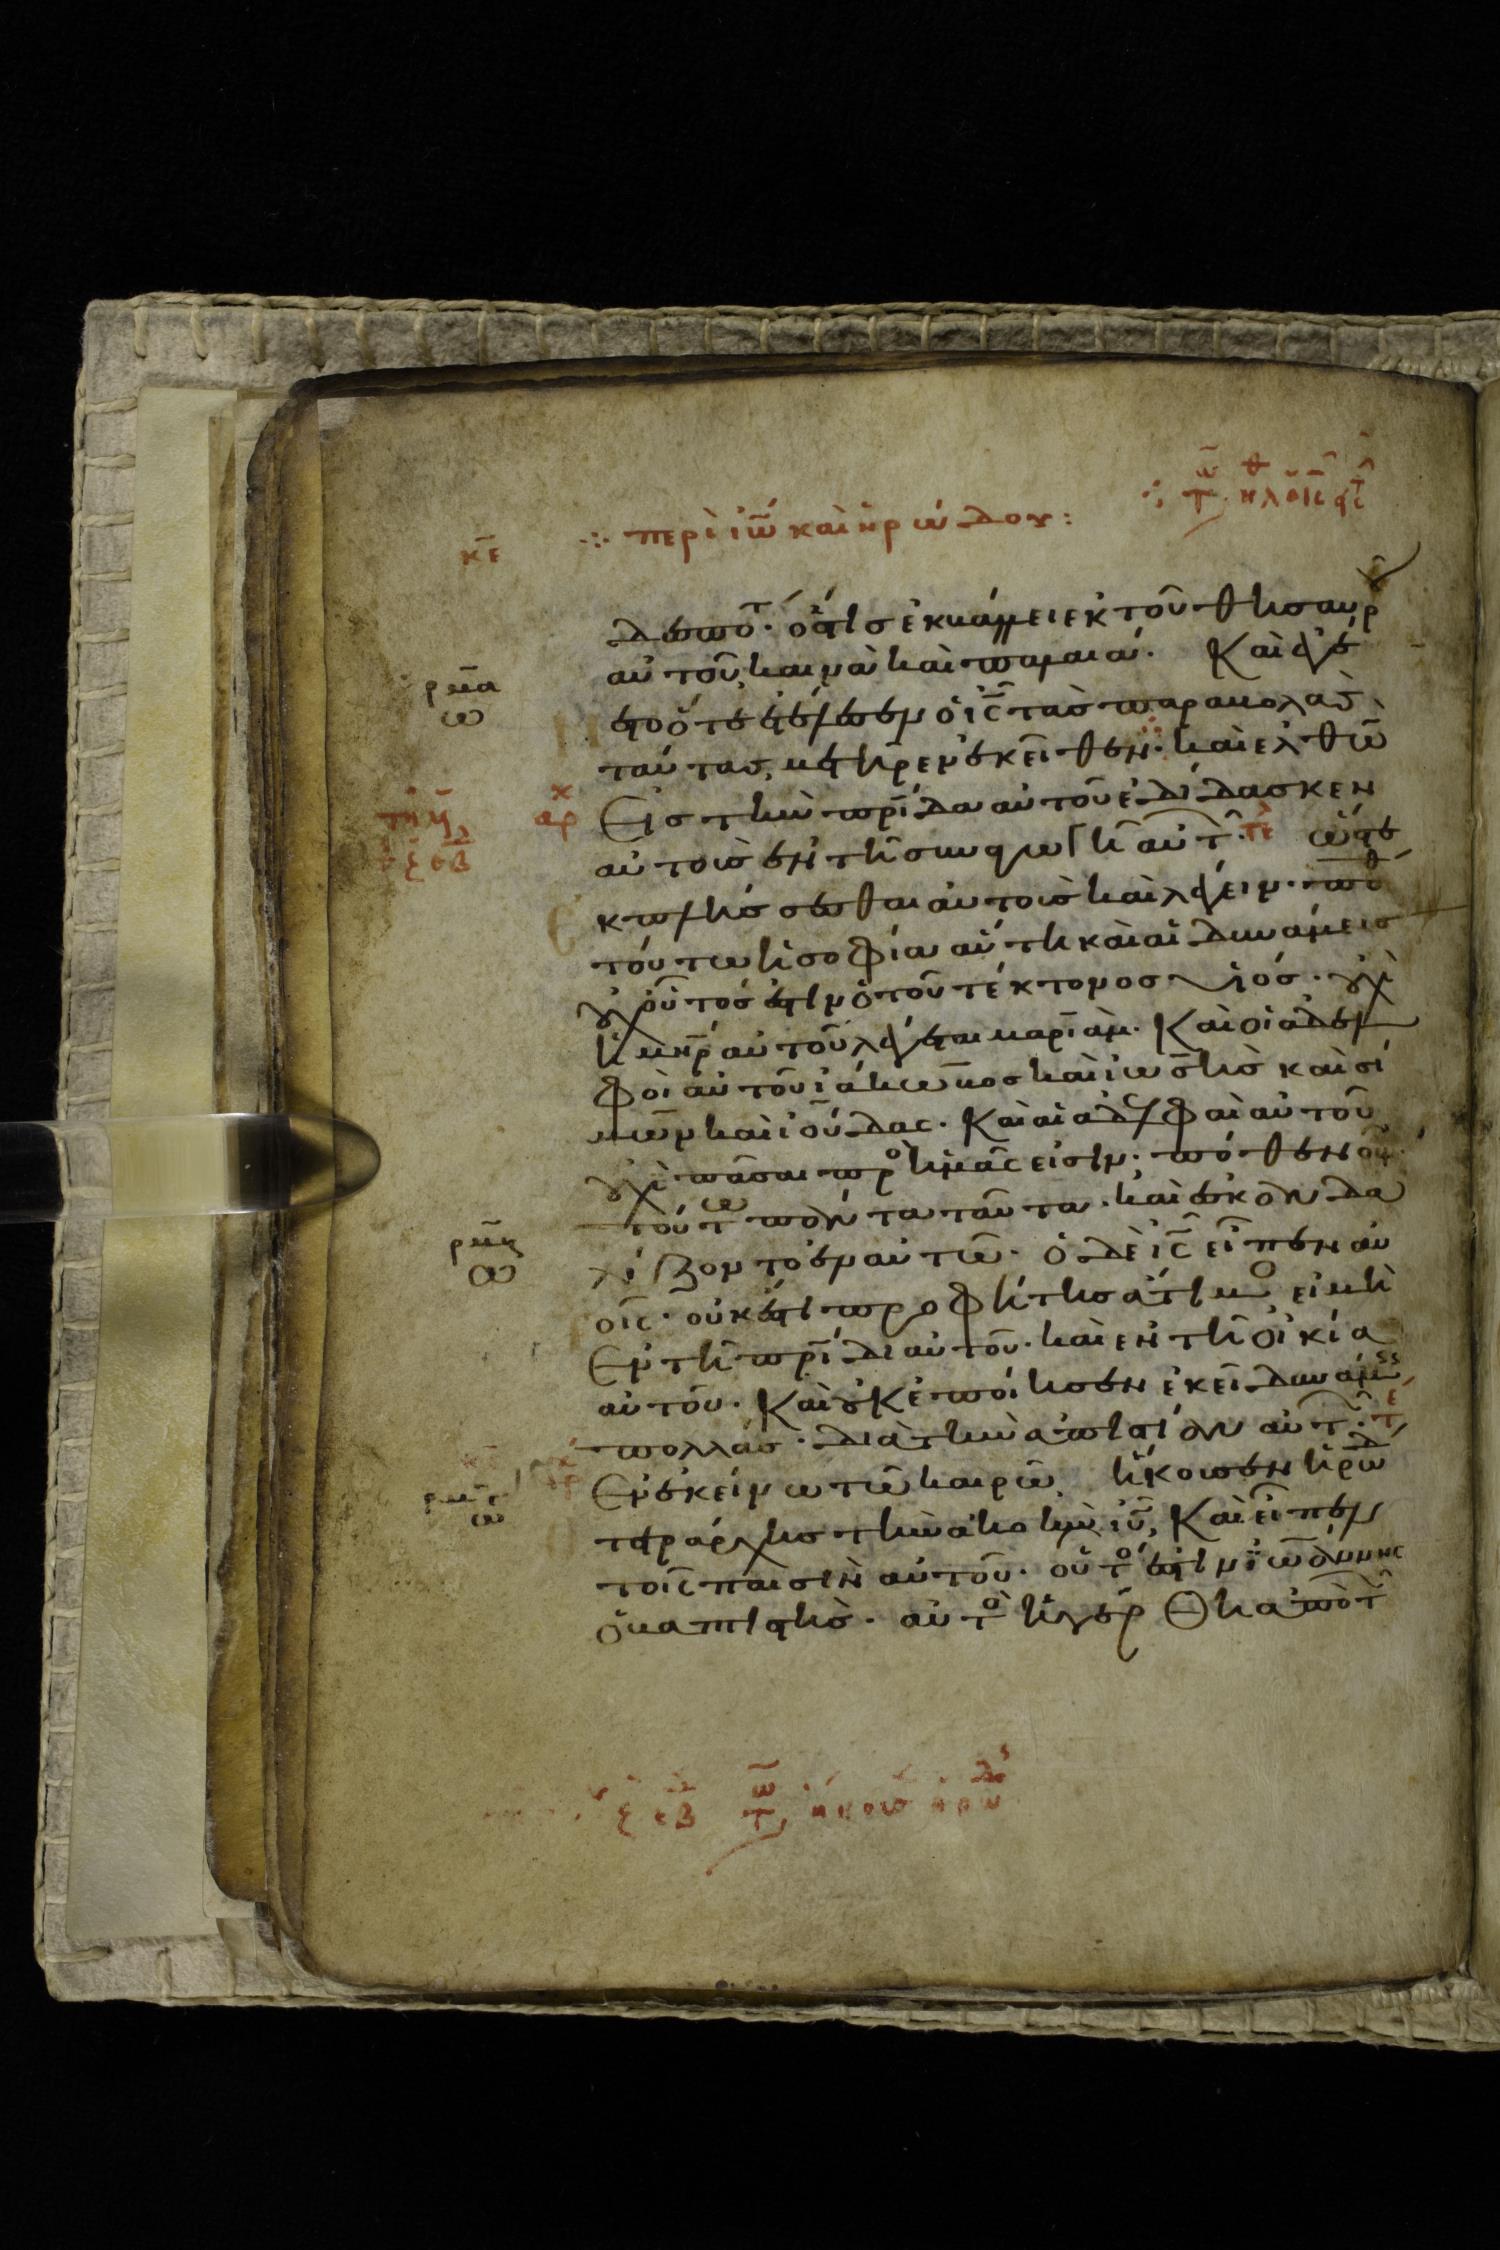 κε ∴ περὶ ἰω καὶ ἡρώδου:
δεσπό τ ὅστις ἐκβάλλει ἐκ τοῦ θησαυρ
αὐτοῦ καινὰ καὶ παλαιά. Καὶ ἐγέ
νετο ὅτε ἐτέλεσεν ὁ ις τὰς παραβολὰς
ταύτας, μετῆρεν ἐκεῖθεν. καὶ ἐλθὼ
Εἰς τὴν πρίδα αὐτοῦ ἐδίδασκεν
αὐτοὺς ἐν τῆ συναγωγῆ αὐτ. ὥστε
ἐκπλήσσεσθαι αὐτοὺς καὶ λέγειν. ποθ
τούτω ἡ σοφία αὕτη καὶ αἱ δυνάμεις
οὐχ οὗτός ἐστιν ὁ τοῦ τέκτονος υἱός. οὐχὶ
ἡ μηρ αὐτοῦ λέγεται μαριὰμ. Καὶ οἱ ἀδελ
φοὶ αὐτοῦ ἰάκωβος καὶ ἰωσῆς καὶ σί
μων καὶ ἰούδας. Καὶ αἱ ἀδελφαὶ αὐτοῦ
οὐχὶ πᾶσαι προ ἡμᾶς εἰσίν. πόθεν οὖν
τούτω πάντα ταῦτα. καὶ ἐσκανδα
λίζοντο ἐν αὐτῶ. ὁ δὲ ις εἶπεν αὐ
οῖς. οὐκ ἔστι προφήτης ἄτιμο εἰ μὴ
Ἐν τῆ πρίδι αὐτοῦ. καὶ ἐν τῆ οἰκία
αὐτοῦ. Καὶ οὐκ ἐποίησεν ἐκεῖ δυνάμεις
πολλάς. διὰ τὴν ἀπιστίαν αὐτ.
Ἐν ἐκείνω τῶ καιρῶ, ἤκουσεν ἡρώδ
τετράρχης τὴν ἀκοὴν ιυ, Καὶ εἶπεν
τοῖς παισὶν αὐτοῦ. οὗτο ἐστιν ἰωάννης
ὁ βαπτιστής. αὐτὸ ἠγέρθη ἀπὸ τ